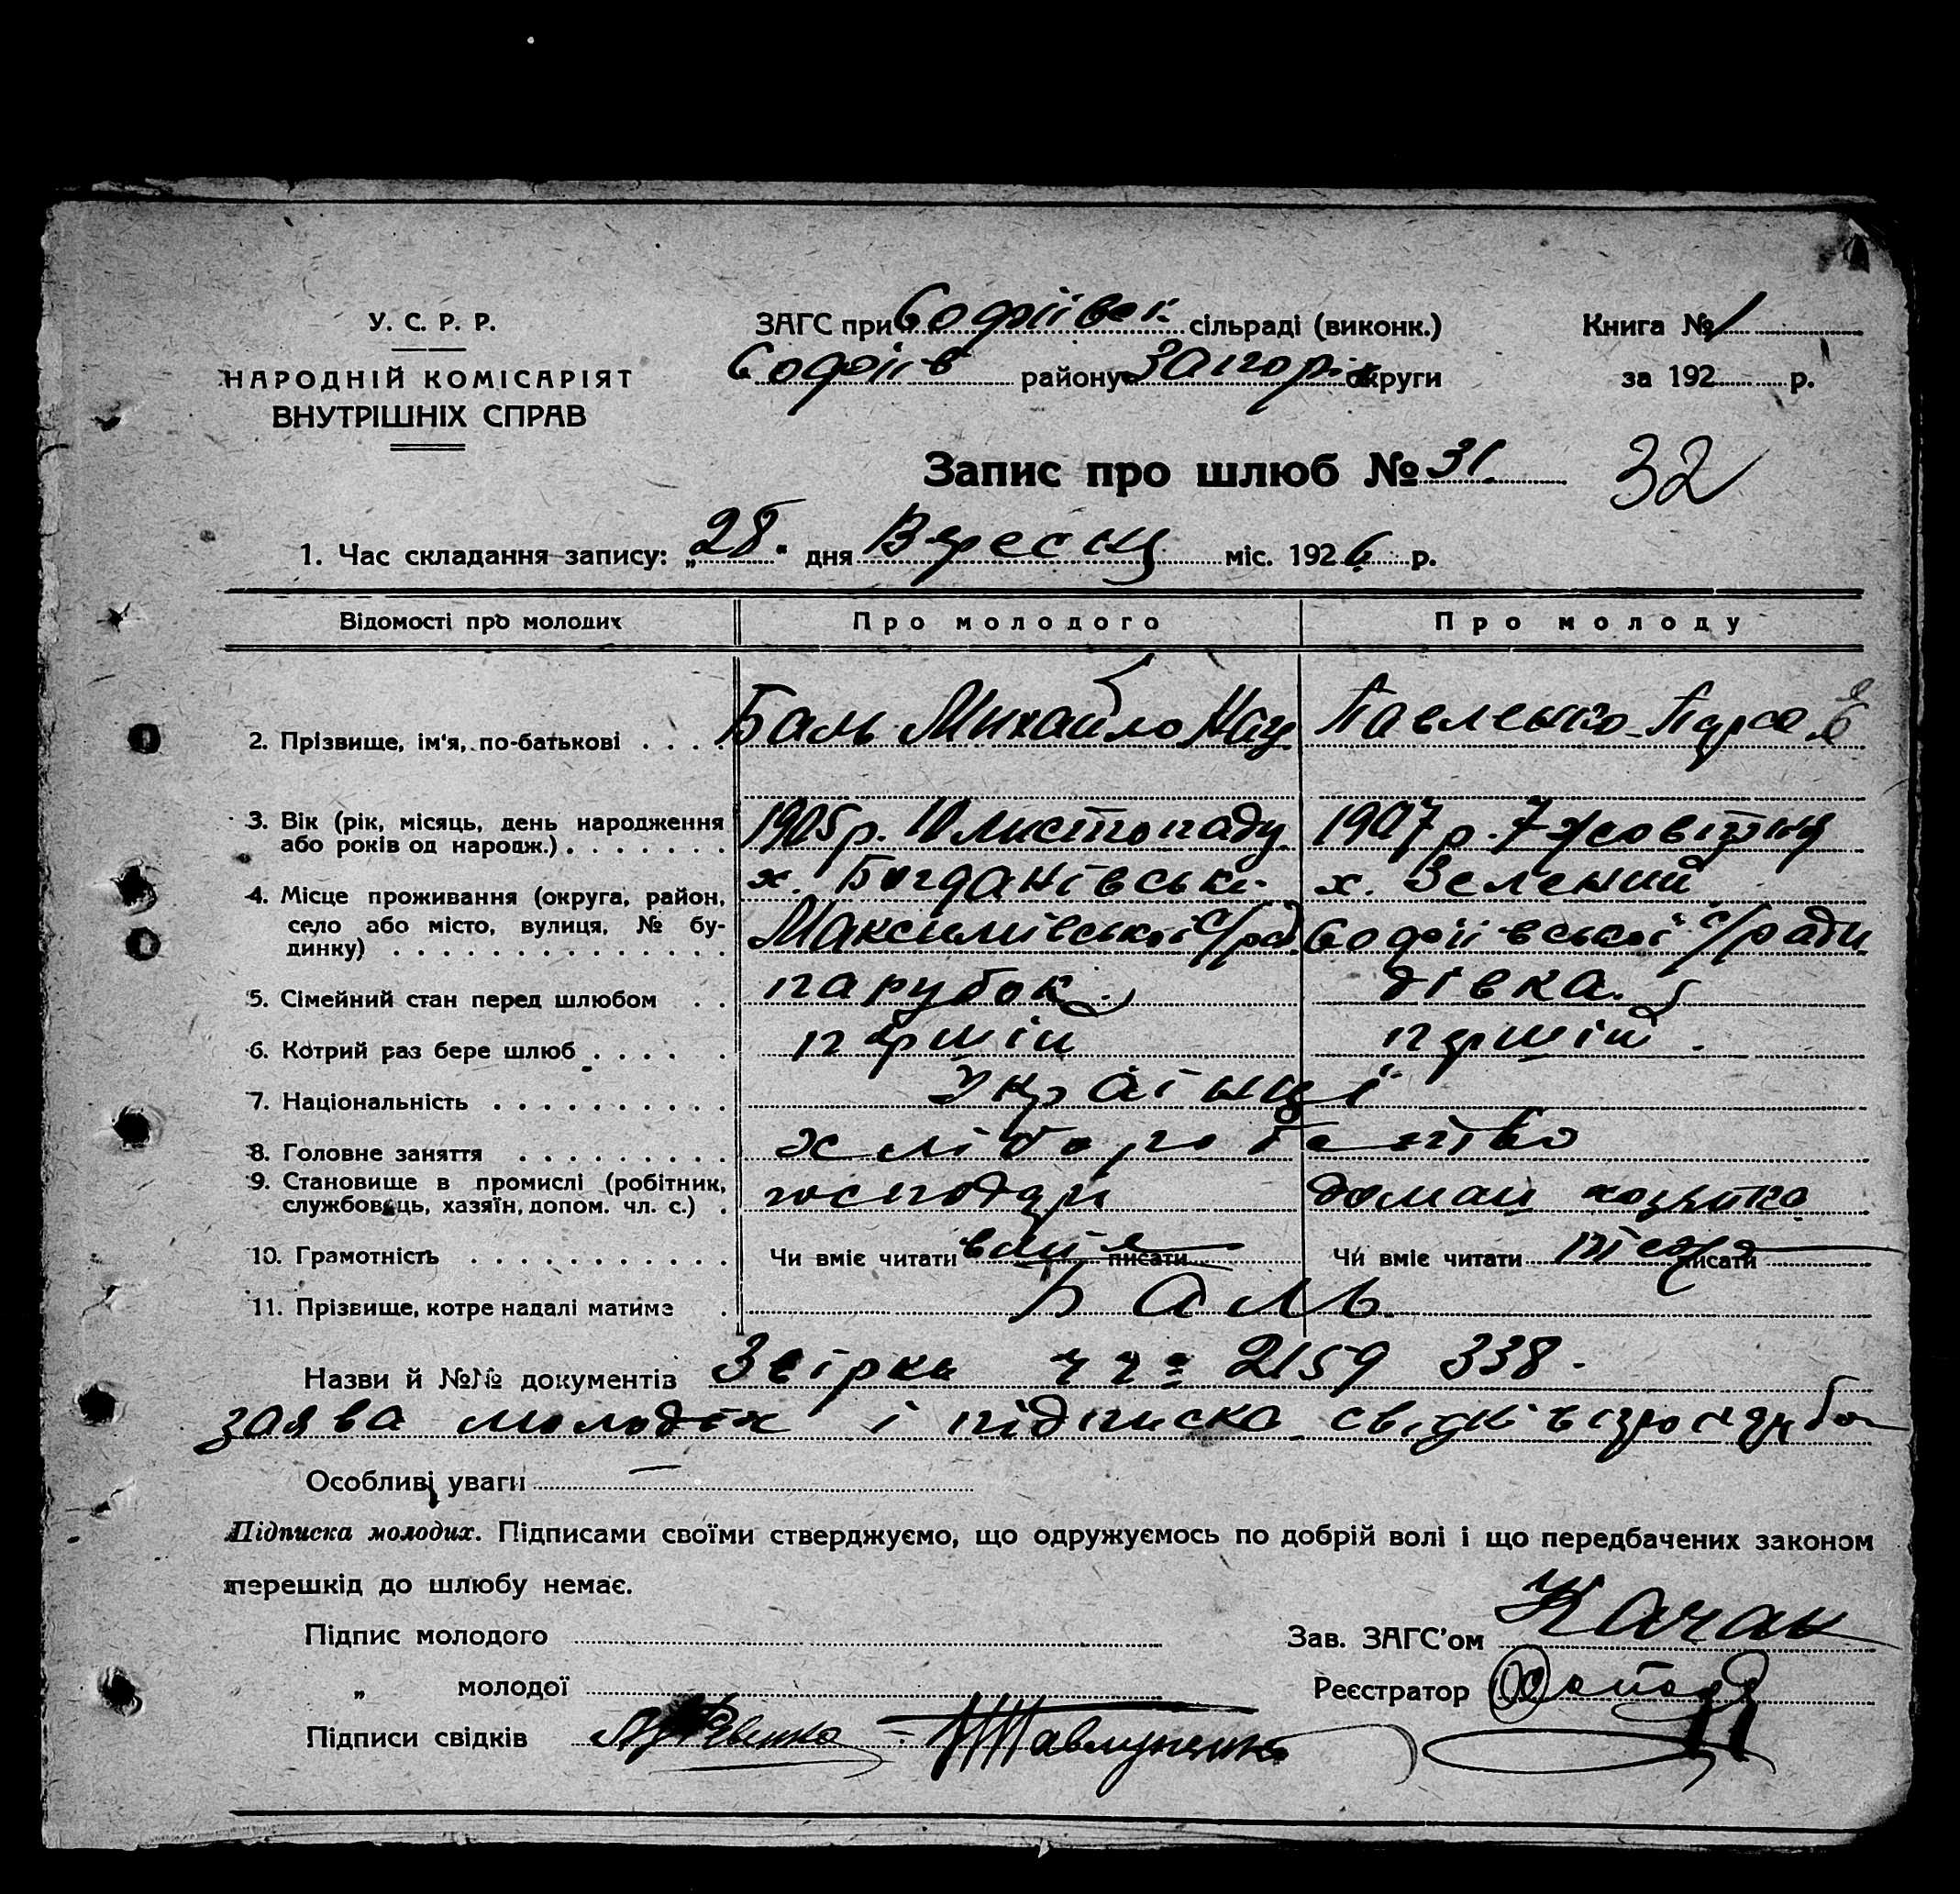 У. С. Р. Р.
НАРОДНІЙ КОМІСАРІЯТ
ВНУТРІШНІХ СПРАВ
ЗАГС при Софіївськ. сільраді (виконк.)
Софіїв району Запоріж округи
Книга № 1
за 192 р.
Запис про шлюб № 31.
32
1. Час складання запису: „28" дня Вересня міс. 1926 р.
Відомості про молодих
Про молодого
Про молоду
2. Прізвище, ім'я, по-батькові . . . .
Баль Михайло
Павленко Парас
3. Вік (рік, місяць, день народження
або років од народж.) . . . . . . .
1905 р. 10 листопаду
1907 р. 7 жовтня
4. Місце проживання (округа, район,
село або місто, вулиця, № бу-
динку) . . . . . . . . . . . . . .
х. Богданівськ.
Максимівської с/рад
х. Зелений
Софіївської с/ради
5. Сімейний стан перед шлюбом . .
парубок.
дівка.
6. Котрий раз бере шлюб . . . . .
перший
перший.
7. Національність . . . . . . . . . .
Українці
8. Головне заняття . . . . . . . . .
хліборобство
9. Становище в промислі (робітник,
службовець, хазяїн, допом. чл. с.) .
господарь
домаш хозяйка
10. Грамотність . . . . . . . . . . .
Чи вміє читати вміє писати
Чи вміє читати теж писати
11. Прізвище, котре надалі матиме .
Баль.
Назви й №№ документів 2159 338.
заява молодих і підписка свідків
Особливі уваги —
Підписка молодих. Підписами своїми стверджуємо, що одружуємось по добрій волі і що передбачених законом
перешкід до шлюбу немає.
Підпис молодого
Зав. ЗАГС'ом Качан
„ молодої
Реєстратор
Підписи свідків Павлуненко